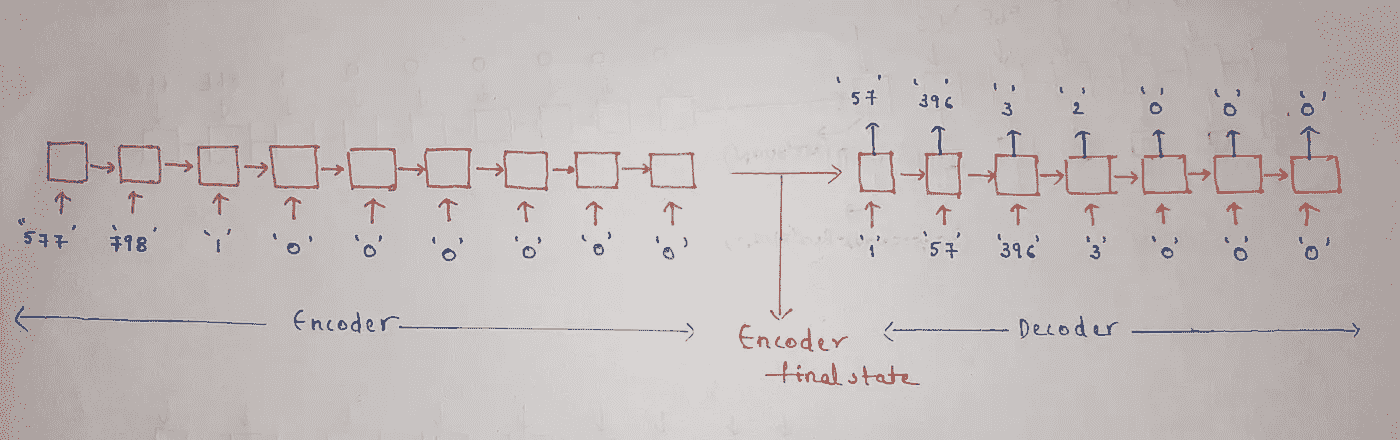 '57' '396' '3' '2' '0' '0' '0'
"577' '798' '1' '0' '0' '0' '0' '0' '0'
'1' '57' '396' '3' '0' '0' '0'
Encoder
Encoder
final state
Decoder